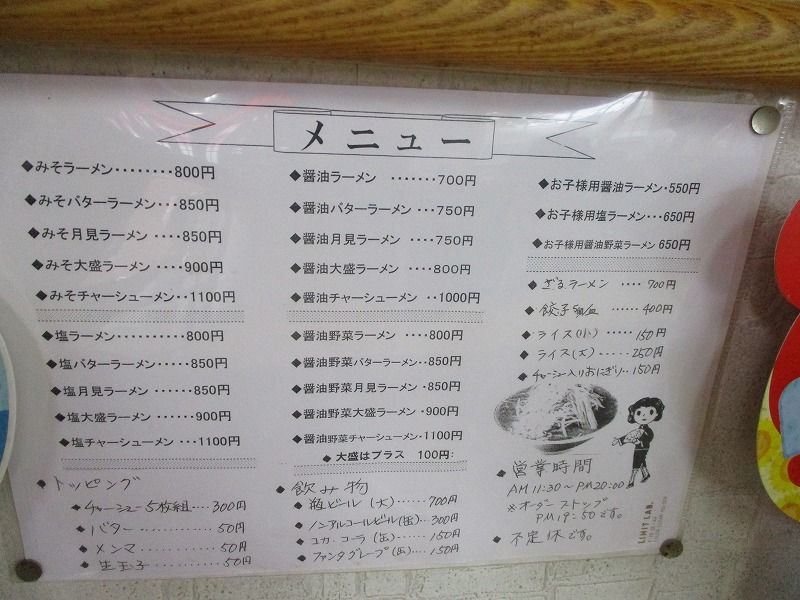 メニュー
◆みそラーメン・・・・・・・・800円
◆みそバターラーメン・・・850円
◆みそ月見ラーメン・・・・850円
◆みそ大盛ラーメン・・・・900円
◆みそチャーシューメン・・1100円
◆塩ラーメン・・・・・・・・・・800円
◆塩バターラーメン・・・・・850円
◆塩月見ラーメン・・・・・・850円
◆塩大盛ラーメン・・・・・・900円
◆塩チャーシューメン・・・1100円
◆トッピング
◆チャーシュー5枚組・・・・300円
◆バター・・・・・・・・・・・50円
◆メンマ・・・・・・・・・・・50円
◆生玉子・・・・・・・・・・・50円
◆醤油ラーメン ・・・・・・・700円
◆醤油バターラーメン・・・750円
◆醤油月見ラーメン ・・・・750円
◆醤油大盛ラーメン ・・・・800円
◆醤油チャーシューメン ・・1000円
◆醤油野菜ラーメン・・・・800円
◆醤油野菜バターラーメン・・850円
◆醤油野菜月見ラーメン・850円
◆醤油野菜大盛ラーメン・900円
◆醤油野菜チャーシューメン・1100円
◆大盛はプラス 100円:
◆飲み物
◆瓶ビール(大)・・・・・・700円
◆ノンアルコールビール(缶)・300円
◆コカ・コーラ(缶)・・・・・・150円
◆ファンタグレープ(缶)・・・・150円
◆お子様用醤油ラーメン・550円
◆お子様用塩ラーメン・・・650円
◆お子様用醤油野菜ラーメン 650円
◆ざるラーメン ・・・・700円
◆餃子 皿 ・・・・・・400円
◆ライス(小)・・・・・150円
◆ライス(大)・・・・・・250円
◆チャーシュー入りおにぎり・・150円
◆営業時間
AM11:30～PM20:00
※オーダーストップ
PM19:50です。
◆不定休です。
LIMIT LAB.